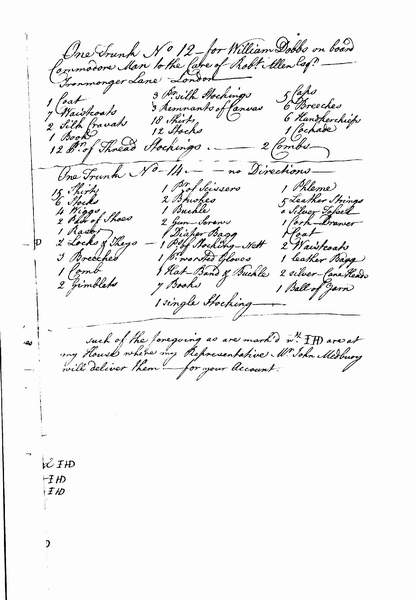 One Trunk No 12 - for William Dobbs on board
Commodore Man to the Care of Robt Allen Esqr
Ironmonger Lane London
1 Coat 3 Pr Silk Stockings 5 Caps
7 Waistcoats 3 Remnants of Canvas 6 Breeches
2 Silk Cravats 18 Shirts 6 Handkerchiefs
1 Book 12 Stocks 1 Cockade
12 Pr. of Thread Stockings. 2 Combs
One Trunk No 14. no Directions
15 Shirts 1 Pr of Scissers 1 Phleme
6 Stocks 2 Brushes 5 Leather Strings
4 Wiggs 1 Buckle Silver
2 Pair of Shoes 2 Gun Screws 1 Cork Drawer
1 Rasor 1 Diaper Bagg 1 Coat
2 Locks & Keys 1 Ps. of Stocking Nett 2 Waistcoats
3 Breeches 1 Pr. worsted Gloves 1 leather Bagg
1 Comb 1 Hat Band & Buckle 2 silver Cane Heads
2 Gimblets 7 Books 1 Ball of Yarn
1 single Stocking
such of the foregoing as are mark'd wth IHD are at
my House where my Representative Mr John Medbury
will deliver them for your Account.
D
2 IHD
IHD
IHD